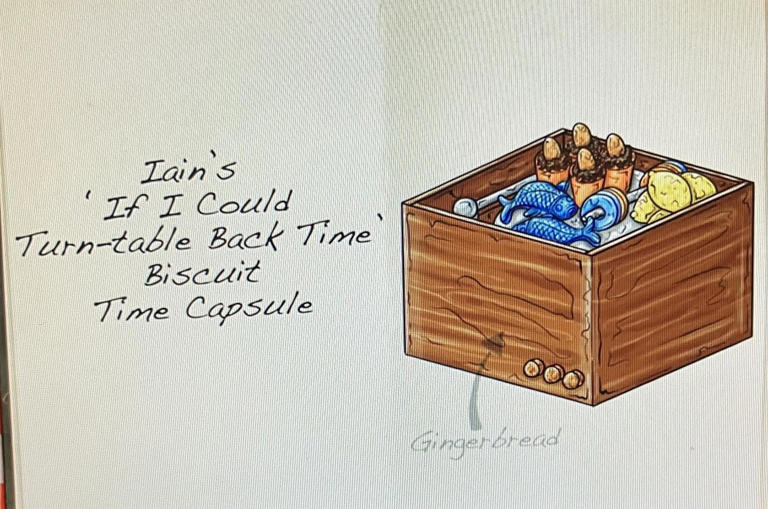 Iain's
'If I Could
Turn-table Back Time'
Biscuit
Time Capsule
Gingerbread